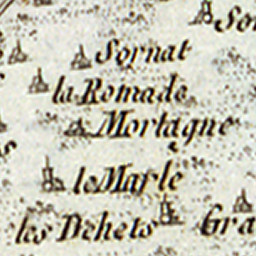 Sornat
la Romade
Mortagne
le Marle
les Dehets
Gra